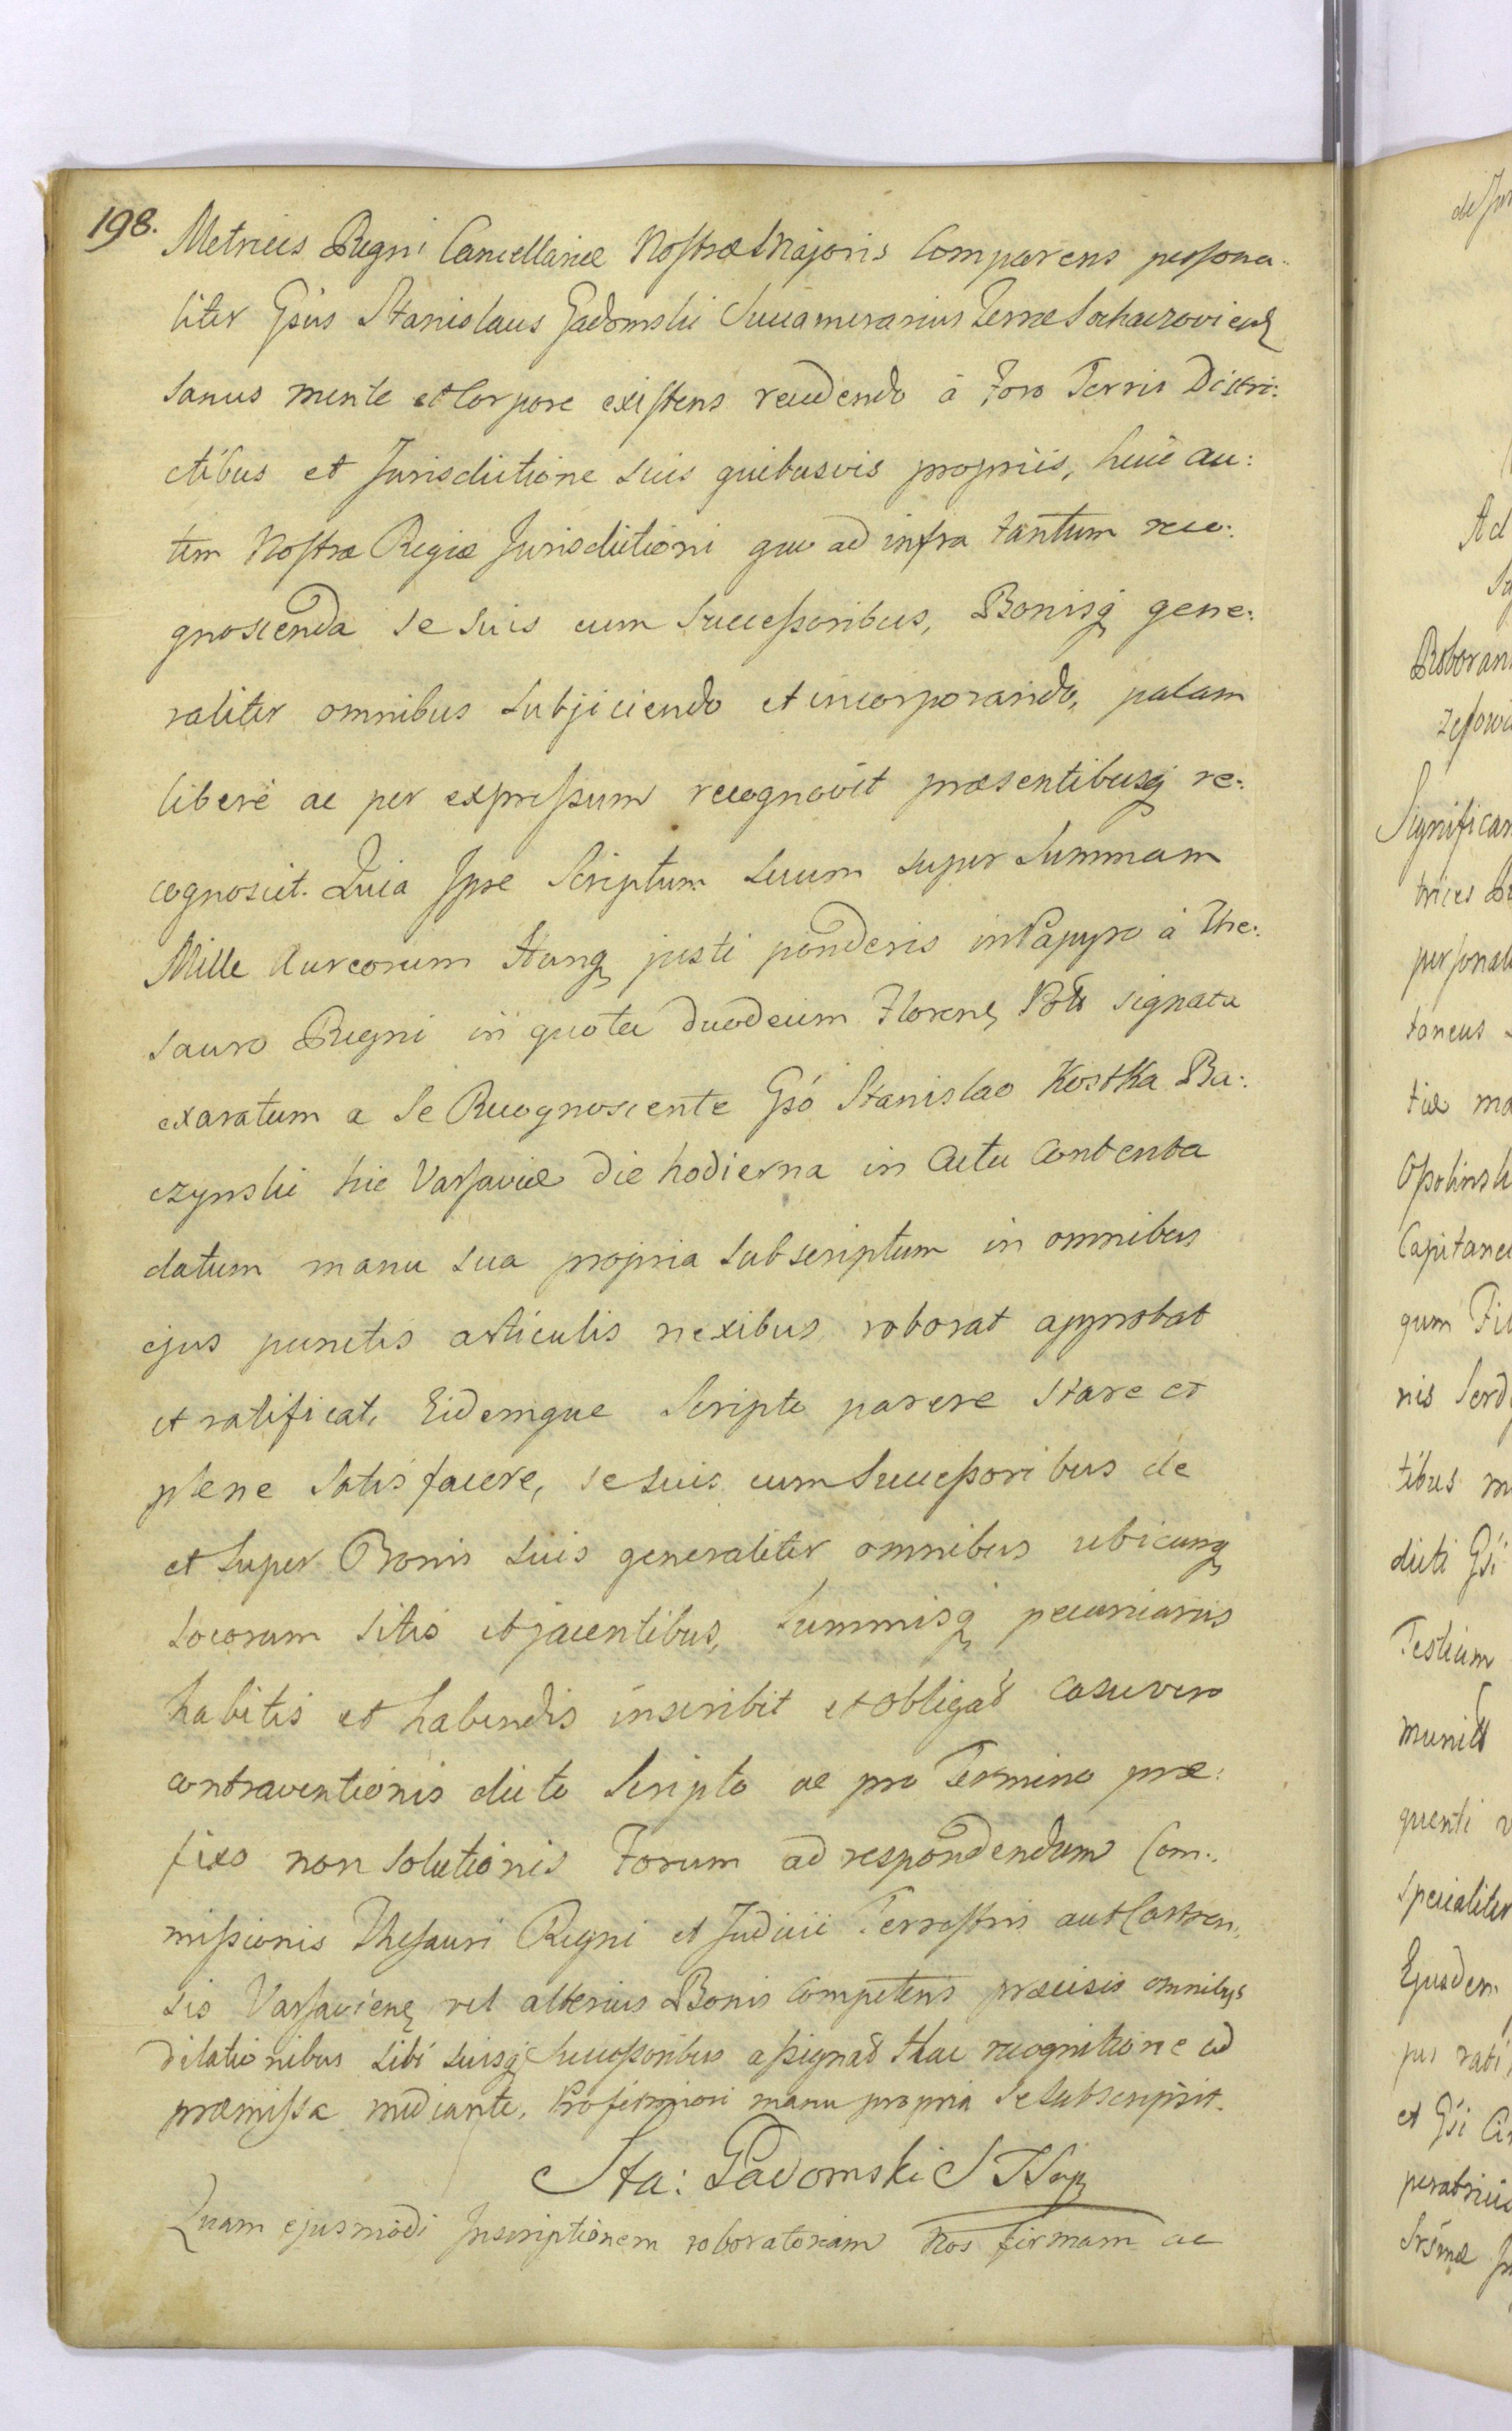 198.
Metricis Regni Cancellariæ Nostræ Majoris Comparens persona-
liter Gsūs Stanislaus Gadomski Succamerarius Terræ Sochaczoviens
sanus mente et Corpore existens recedendo à Foro Terris Distri:
ctibus et Jurisdictione suis quibusvis propriis, huic au:
tem Nostræ Regiæ Jurisdictioni quo ad infra tantum reco:
gnoscenda se suis cum Successoribus, Bonisq gene:
raliter omnibus subjiciendo et incorporando, palam
libere ac per expressum recognovit præsentibusq re:
cognoscit. Quia Ipse Scriptum suum super Summam
Mille Aureorum Hung justi ponderis in Papyro à The:
sauro Regni in quota duodecim Floren Pols signata
exaratum a se Recognoscente Gsó Stanislao Kostka Ba:
czynski hic Varsaviæ die hodierna in Actu Contenta
datum manu sua propria subscriptum in omnibus
ejus punctis articulis nexibus roborat approbat
et ratificat, Eidemque Scripto parere stare et
plene satisfacere, se suis cum Successoribus de
et super Bonis suis generaliter omnibus ubicunq
locorum sitis et jacentibus, Summisq pecuniariis
habitis et habendis inscribit et obligat casu vero
contraventionis dicto Scripto ac pro Termino præ:
fixo non solutionis Forum ad respondendum Com:
missionis Thesauri Regni et Judicii Terrestris aut Castren:
sis Varsaviens vel alterius Bonis Competens præcisis omnibus
dilationibus sibi suisq Successoribus assignat Hac recognitione ad
præmissa mediante. Pro firmiori manu propria se subscripsit.
Sta: Gadomski
Quam ejusmodi Inscriptionem roboratoriam Nos firmam ac
Ad
Roboran
Significan
trices
personal
taneus
tiæ ma
Opolinsk
Capitane
quum
nis
tibus m
dicti Gsi
Testium
quenti
specialiter
Ejusdem
et Gsi